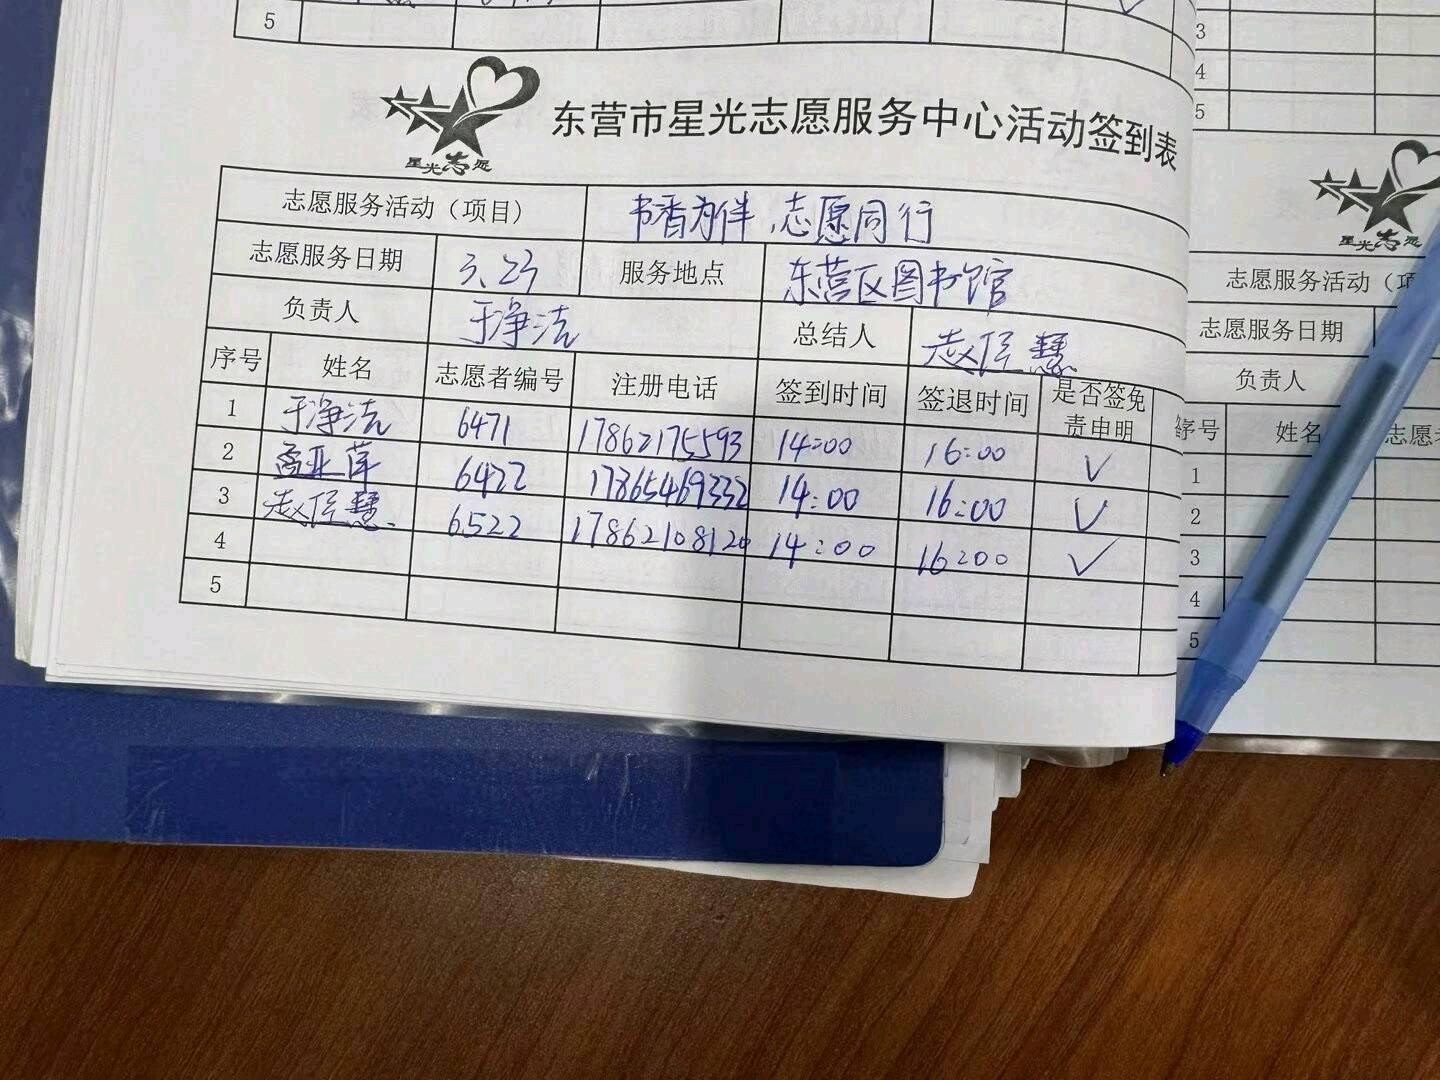 5
星光志愿
东营市星光志愿服务中心活动签到表
志愿服务活动（项目） 书香为伴，志愿同行
志愿服务日期 3.23 服务地点 东营区图书馆
负责人 于净洁 总结人 赵佳慧
序号 姓名 志愿者编号 注册电话 签到时间 签退时间 是否签免责申明
1 于净洁 6471 17862175593 14:00 16:00 ✓
2 亚萍 6422 17865469332 14:00 16:00 ✓
3 赵佳慧 6522 17862108120 14:00 16:00 ✓
4
5
3
4
5
星光志愿
志愿服务活动（项
志愿服务日期
负责人
序号 姓名 志愿者
1
2
3
4
5